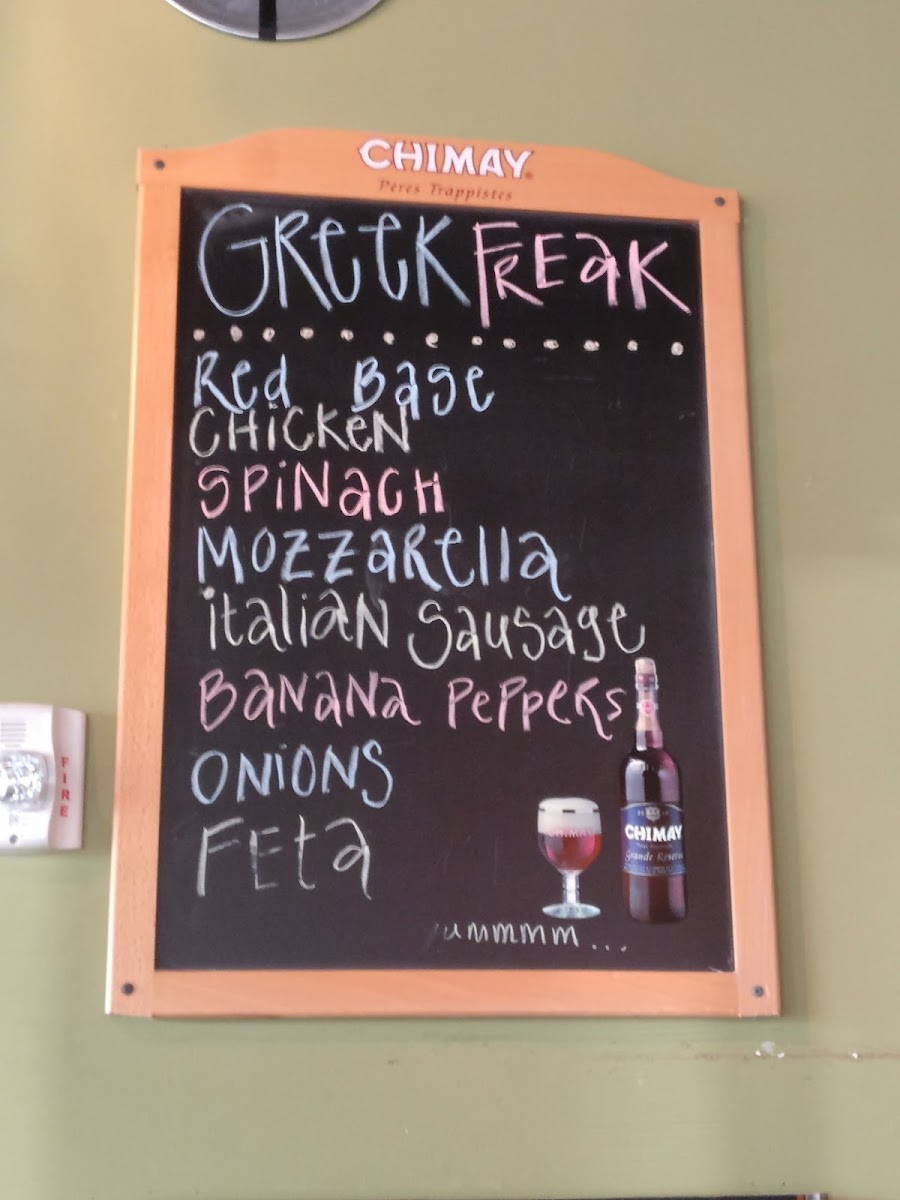 CHIMAY
Pères Trappistes
GReek FREaK
Red Base
CHicKeN
SPiNacH
MOZZaRella
italiaN Sausage
BaNaNa PePPeRs
ONiONS
FEta
CHIMAY
Grande Réserve
CHIMAY
yummmm...
FIRE